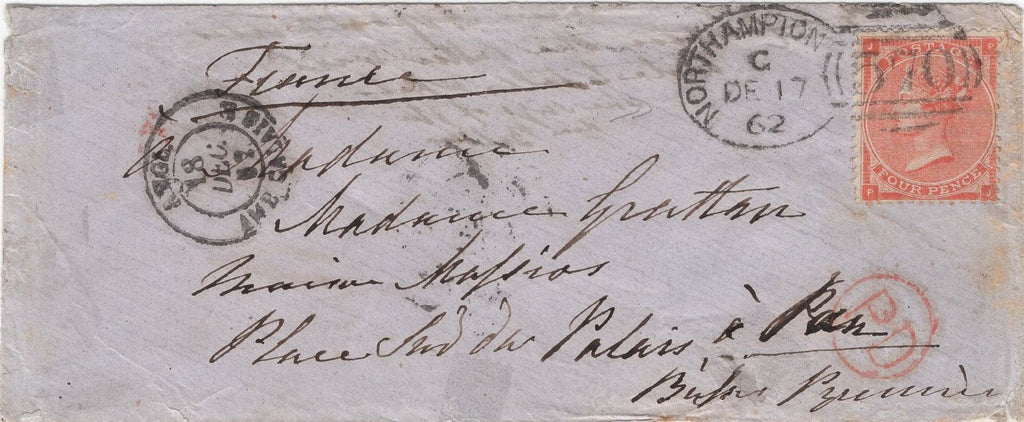 France
à Madame
Madame Grattan
maison Massios
Place Sud du Palais à Pau
Basses Pyrénées
NORTHAMPTON
C
DE 17
62
570
POSTAGE
FOUR PENCE
P J
J P
ANGL.
AMB. CALAIS
18
DEC.
62
PD